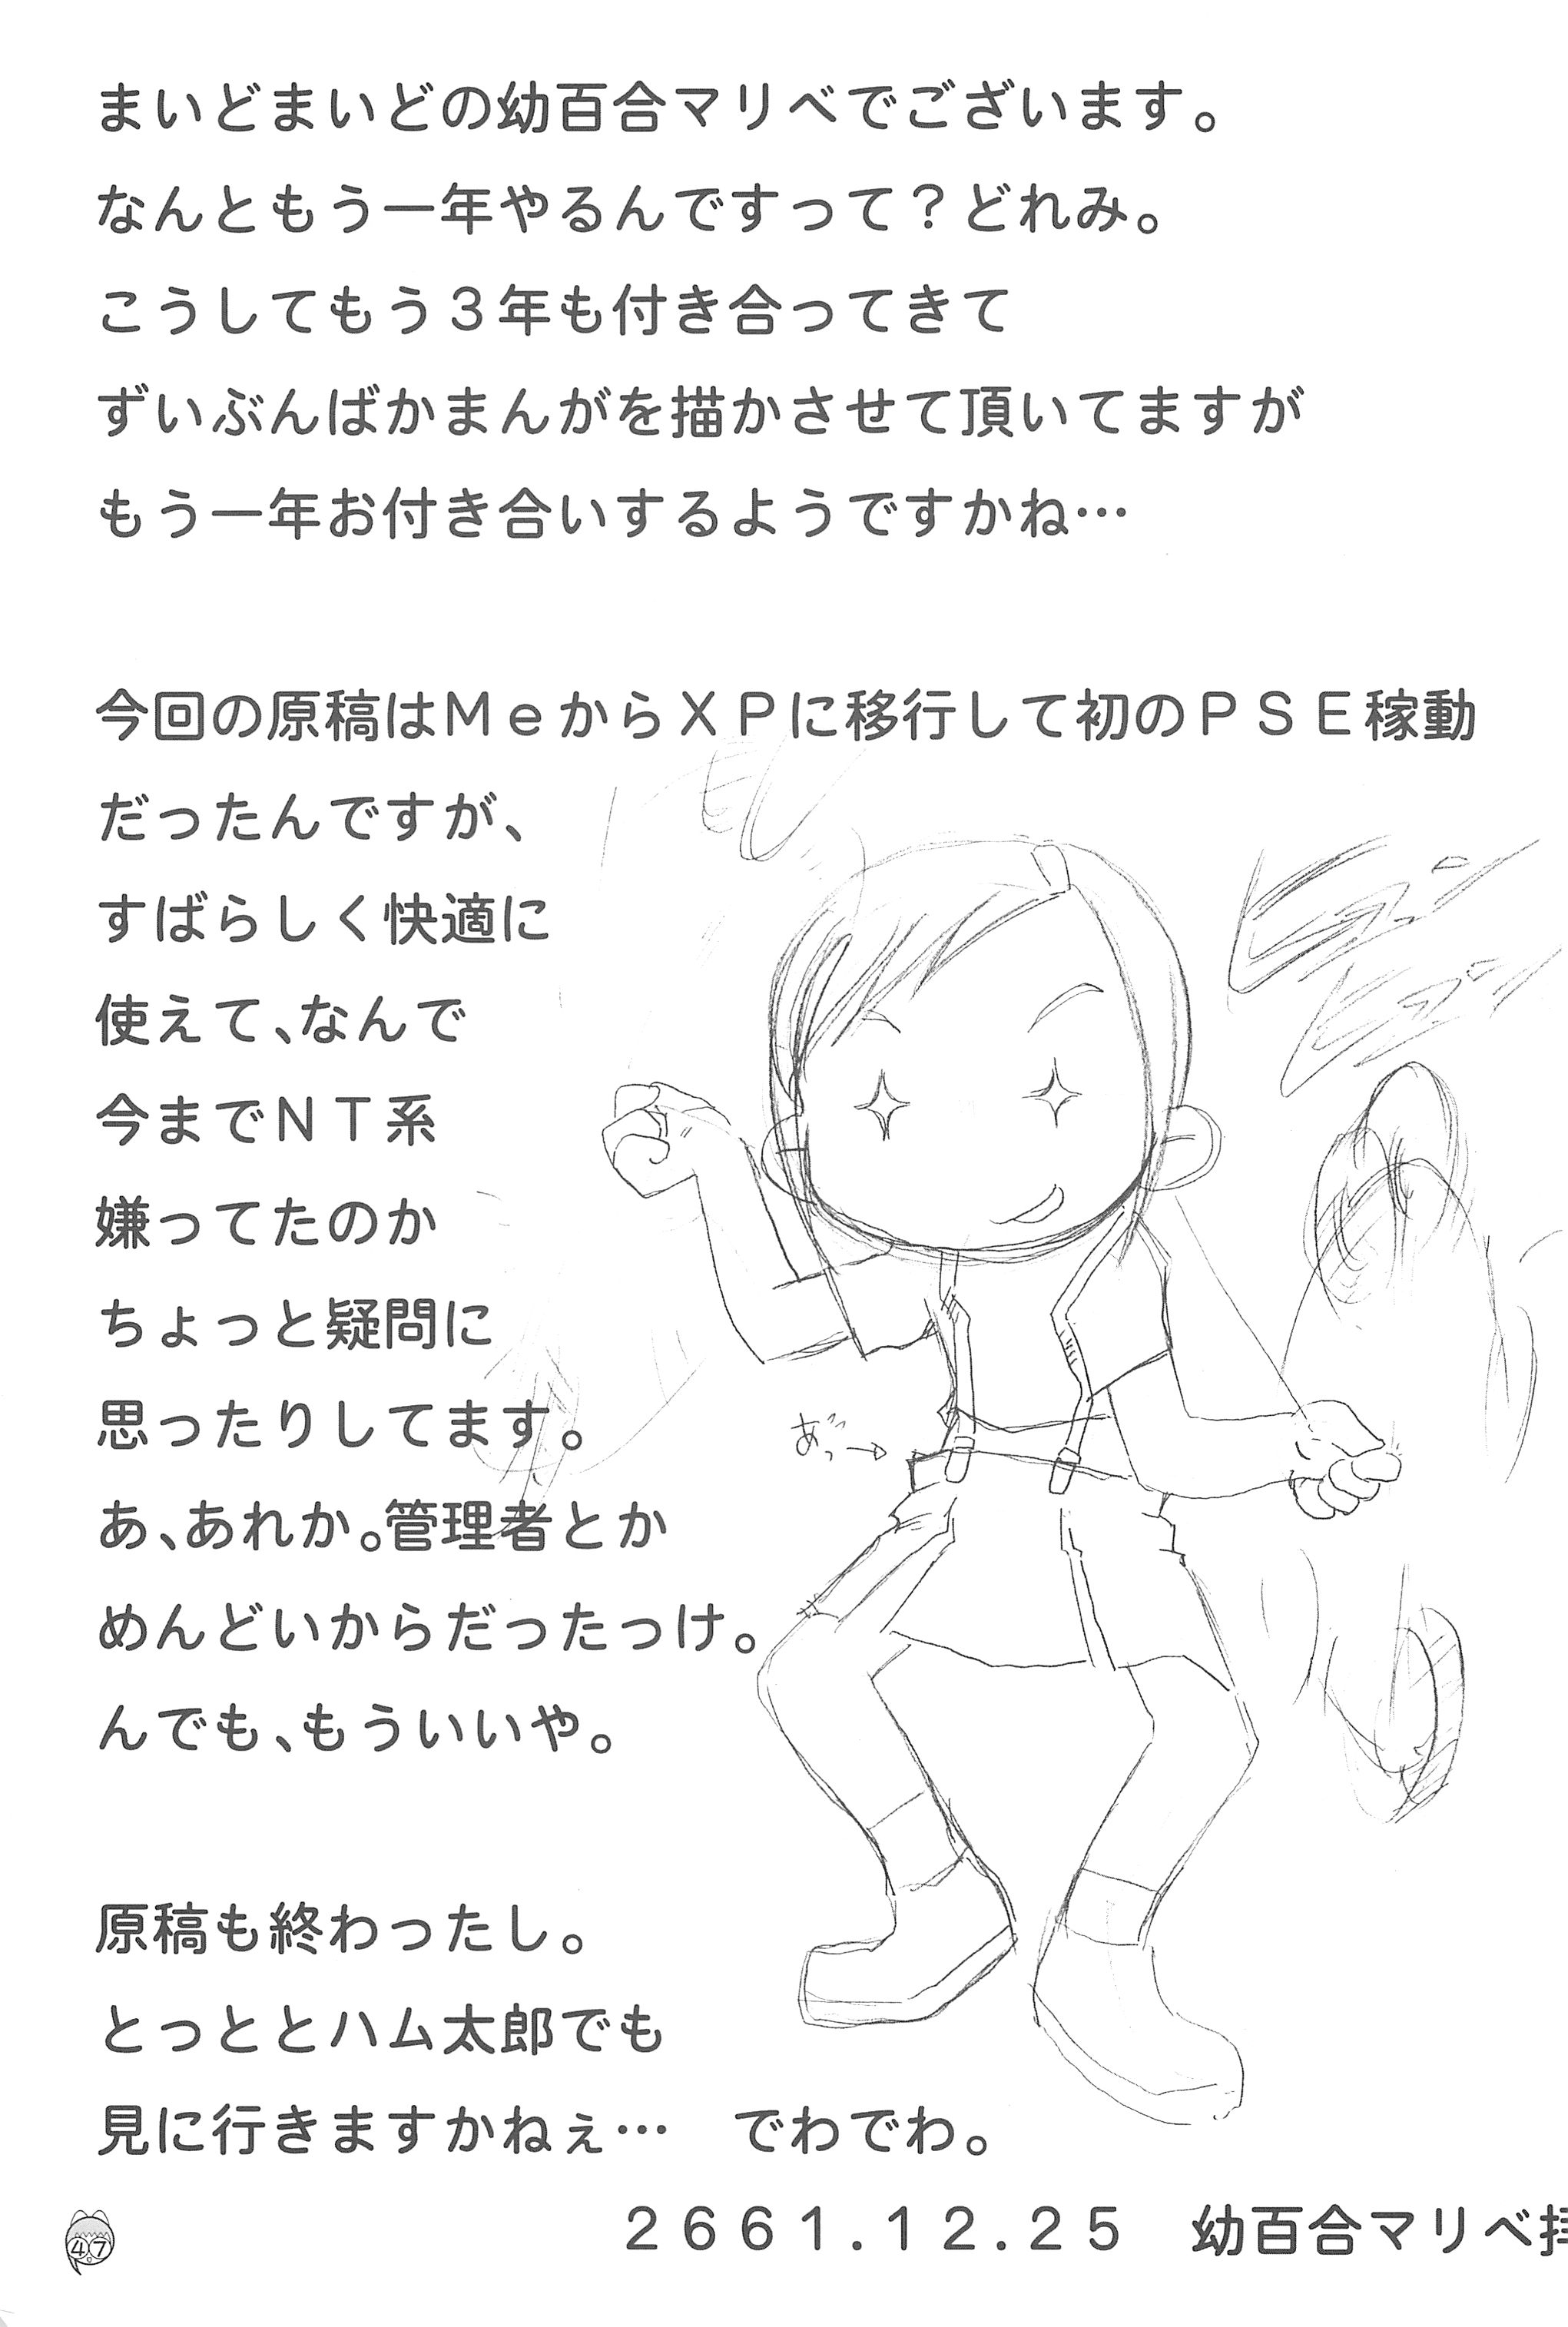 まいどまいどの幼百合マリベでございます。
なんともう一年やるんですって？どれみ。
こうしてもう３年も付き合ってきて
ずいぶんばかまんがを描かさせて頂いてますが
もう一年お付き合いするようですかね…
今回の原稿はＭｅからＸＰに移行して初のＰＳＥ稼動
だったんですが、
すばらしく快適に
使えて、なんで
今までＮＴ系
嫌ってたのか
ちょっと疑問に
思ったりしてます。
あ、あれか。管理者とか
めんどいからだったっけ。
んでも、もういいや。
原稿も終わったし。
とっととハム太郎でも
見に行きますかねぇ…　でわでわ。
２６６１.１２.２５　幼百合マリベ拝
ビュン
ビュン
あ゛っ→
47